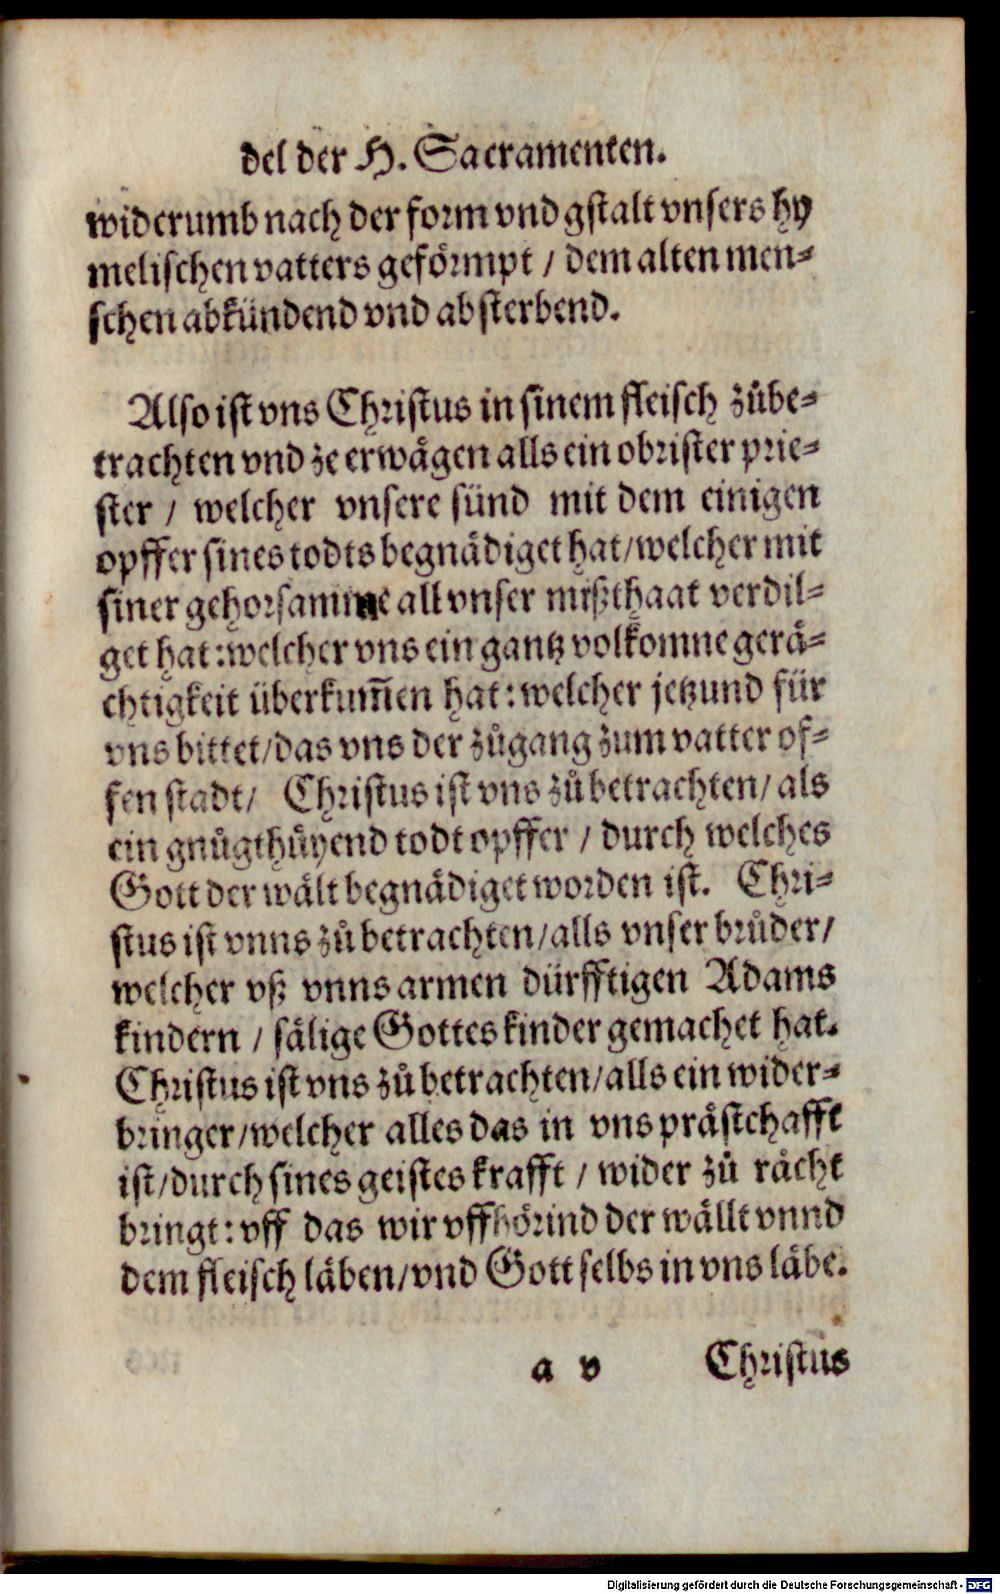 del der H. Sacramenten.
widerumb nach der form vnd gstalt vnsers hy
melischen vatters geförmpt / dem alten men-
schen abkündend vnd absterbend.
Also ist vns Christus in sinem fleisch zůbe-
trachten vnd ze erwågen alls ein obrister prie-
ster / welcher vnsere sünd mit dem einigen
opffer sines todts begnådiget hat/welcher mit
siner gehorsamme all vnser mißthaat verdil-
get hat:welcher vns ein gantz volkomne gerå-
chtigkeit überkum̃en hat:welcher jetzund für
vns bittet/das vns der zůgang zum vatter of-
fen stadt/ Christus ist vns zů betrachten/ als
ein gnůgthůyend todt opffer / durch welches
Gott der wålt begnådiget worden ist. Chri-
stus ist vnns zů betrachten/alls vnser brůder/
welcher vß vnns armen dürfftigen Adams
kindern / sålige Gottes kinder gemachet hat.
Christus ist vns zů betrachten/alls ein wider-
bringer/welcher alles das in vns pråsthafft
ist/durch sines geistes krafft / wider zů råcht
bringt:vff das wir vffhörind der wållt vnnd
dem fleisch låben/vnd Gott selbs in vns låbe.
a v Christus
Digitalisierung gefördert durch die Deutsche Forschungsgemeinschaft - DFG